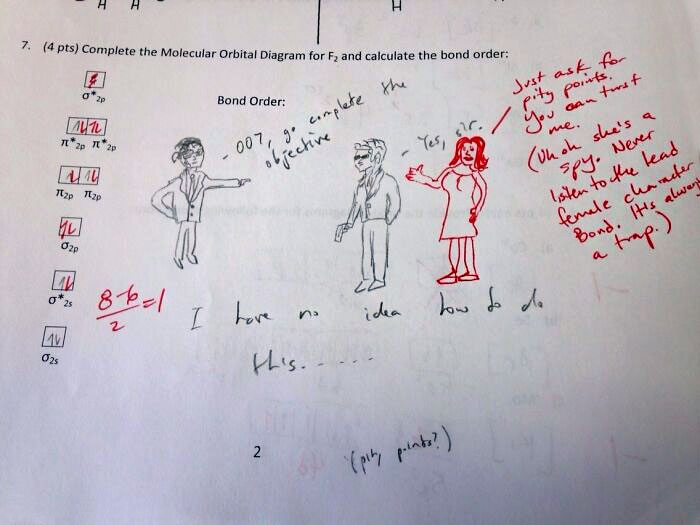 H H
H
7. (4 pts) Complete the Molecular Orbital Diagram for F₂ and calculate the bond order:
σ*2p
Bond Order:
π*2p π*2p
π2p π2p
σ2p
σ*2s
σ2s
- 007, go complete the
objective
- Yes, sir.
Just ask for
pity points.
You can trust
me.
(Uh oh she's a
spy. Never
listen to the lead
female character
Bond. It's always
a trap.)
8-6/2=1
I have no idea how to do
this......
2
(pity points?)